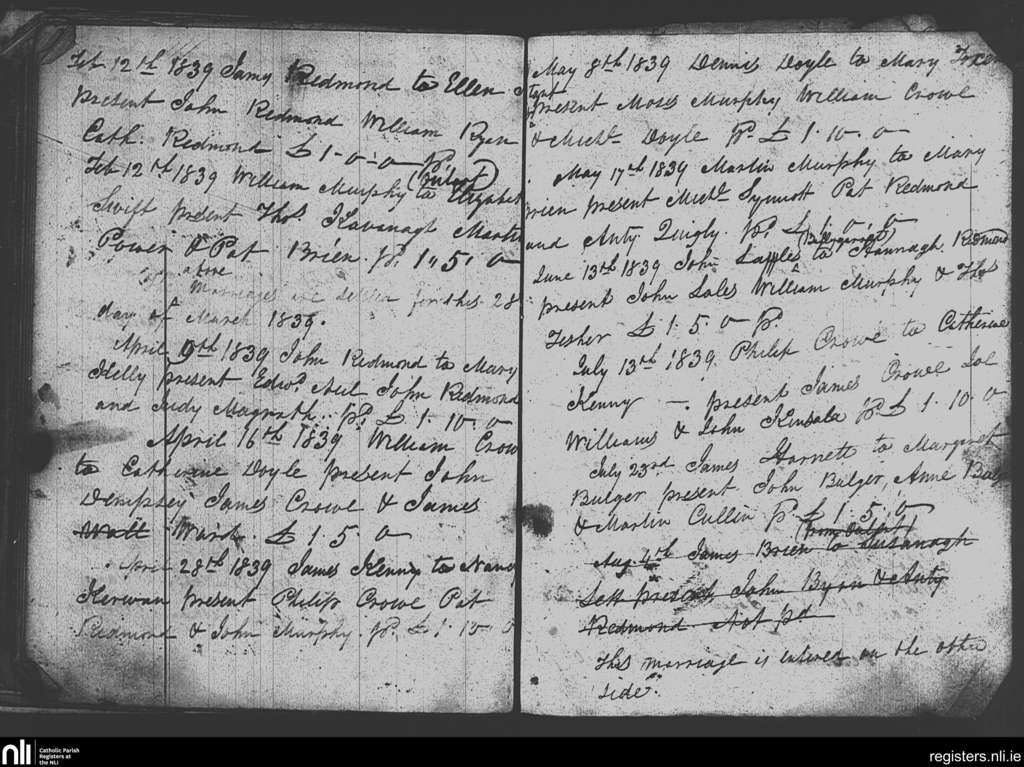 Feb 12th 1839 Jamy Redmond to Ellen
present John Redmond William Ryan
Cath. Redmond £ 1-0-0 pd.
Feb 12th 1839 William Murphy to Elizabet
Swift present Thos Kavanagh Martin
Power & Pat Brien. pd. 1,,5,0
fore
Marriages are settled for this 28
day of March 1839.
April 9th 1839 John Redmond to Mary
Kelly present Edwd. Neil John Redmond
and Judy Magrath.. pd. £ 1.10.0
April 16th 1839 William Crow
to Catherine Doyle present John
Dempsey James Crowe & James
Watt Ward. £ 1.5.0
April 28th 1839 James Kenny to Nancy
Kerwan present Philip Crowe Pat
Redmond & John Murphy. pd. £ 1.10.0
May 8th 1839 Dennis Doyle to Mary
present Moses Murphy William Crowe
& Michl. Doyle pd. £ 1.10.0
May 17th 1839 Martin Murphy to Mary
Brien present Michl. Synnott Pat Redmond
and Anty Quigly. pd. £ 1.0.0
June 13th 1839 John to Hannagh Redmond
present John Lales William Murphy & Thos
Fesher £ 1.5.0 pd.
July 13th 1839. Philip Crowe to Catherine
Kenny -. present James Crowe Sol
Williams & John Kinsala pd. £ 1.10.0
July 23rd James Harnett to Margaret
Bulger present John Bulger, Anne Bulg
& Martin Cullin pd £ 1.5.0
(from Oulart)
Aug 4th James Brien to Susanagh
Lett present John Byrn & Anty
Redmond. Not pd
This marriage is entered on the other
side.
nli
Catholic Parish
Registers at
the NLI
registers.nli.ie